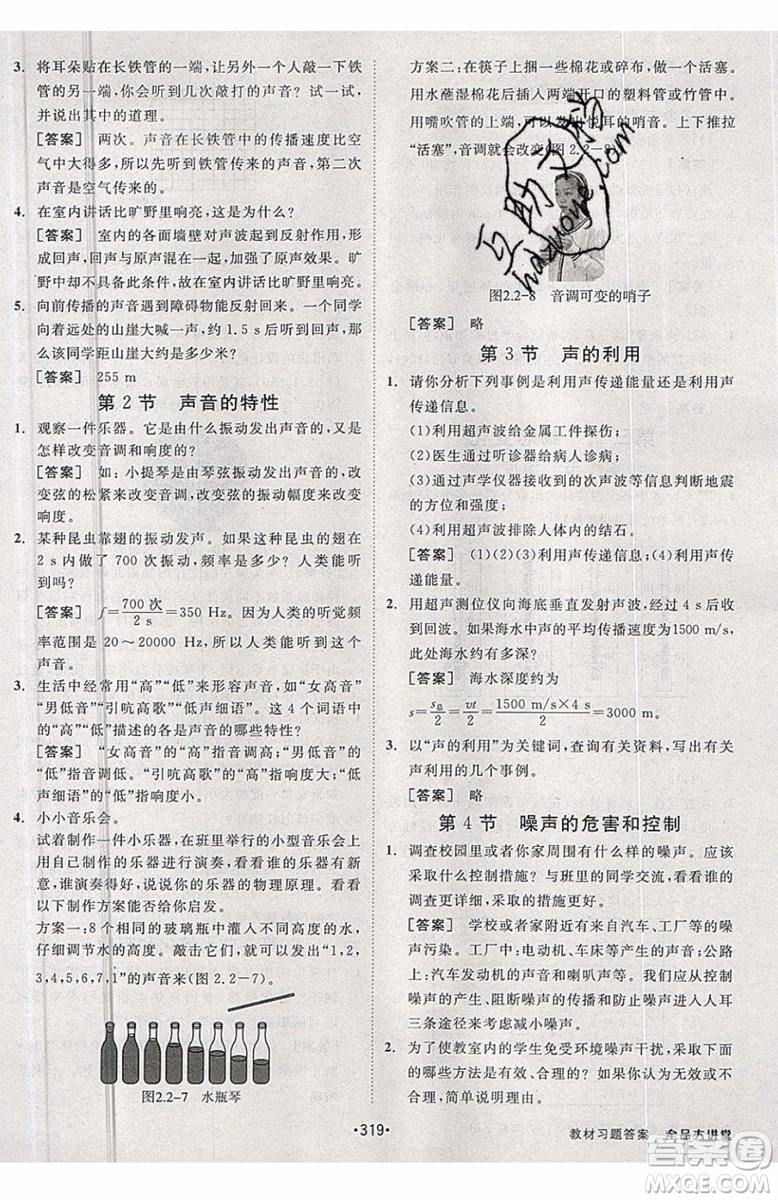 3. 将耳朵贴在长铁管的一端,让另外一个人敲一下铁
管的另一端,你会听到几次敲打的声音?试一试,
并说出其中的道理。
[答案] 两次。声音在长铁管中的传播速度比空
气中大得多,所以第一次是铁管传来的声音,第二次
声音是空气传来的。
4. 在室内讲话比旷野里响亮,这是为什么?
[答案] 室内的各面墙壁对声波起到反射作用,形
成回声,回声与原声混在一起,加强了原声。而旷
野中却不具备此条件,所以在室内讲话比旷野响亮。
5. 向前传播的声音遇到障碍物能反射回来。一个同学
向着远处的山崖大喊一声,约1.5 s后听到回声,那
么该同学距山崖大约是多少米?
[答案] 255 m
第2节 声音的特性
1. 观察一件乐器。它是由什么振动发出声音的?又是
怎样改变音调和响度的?
[答案] 如:小提琴是由琴弦振动发出声音的,改
变弦的松紧来改变音调,改变弦的振动幅度来改变
响度。
2. 某种昆虫靠翅的振动发声。如果这种昆虫的翅在
2 s内做了700次振动,频率是多少?人类能听
到吗?
[答案] f=700次/2 s=350 Hz。因为人类的听觉频
率范围是20~20000 Hz,所以人类能听到这种
声音。
3. 生活中经常用“高”“低”来形容声音,如“女高音”
“男低音”“引吭高歌”“低声细语”。这4个词语中
的“高”“低”描述的各是声音的哪些特性?
[答案] “女高音”的“高”指音调高;“男低音”的
“低”指音调低。“引吭高歌”的“高”指响度大;“低
声细语”的“低”指响度小。
4. 小小音乐会。
试着制作一件小乐器,在班里举行的小型音乐会上
用自己制作的乐器进行演奏,看看谁的乐器有新
意,谁演奏得好。说说你的乐器的物理原理。看看
以下制作方案能否给你启发。
方案一:8个相同的玻璃瓶中灌入不同高度的水,
仔细调节水的高度。敲击它们,就可以发出“1,2,
3,4,5,6,7,1”的声音来(图2.2-7)。
图2.2-7 水瓶琴
方案二:在筷子上捆一些棉花或碎布,做一个活塞。
用水蘸湿棉花后插入两端开口的塑料管或竹管中。
用嘴吹管的上端,可以发出悦耳的哨音。上下推拉
“活塞”,音调就会改变(图2.2-8)。
互助文档
hazuoye.com
图2.2-8 音调可变的哨子
[答案] 略
第3节 声的利用
1. 请你分析下列事例是利用声传递能量还是利用声
传递信息。
(1)利用超声波给金属工件探伤;
(2)医生通过听诊器给病人诊病;
(3)通过声学仪器接收到的次声波等信息判断地震
的方位和强度;
(4)利用超声波排除人体内的结石。
[答案] (1)(2)(3)利用声传递信息;(4)利用声传
递能量。
2. 用超声测位仪向海底垂直发射声波,经过4 s后收
到回波。如果海水中声的平均传播速度为1500 m/s,
此处海水约有多深?
[答案] 海水深度约为
s=s总/2=vt/2=1500 m/s×4 s/2=3000 m。
3. 以“声的利用”为关键词,查询有关资料,写出有关
声利用的几个事例。
[答案] 略
第4节 噪声的危害和控制
1. 调查校园里或者你家周围有什么样的噪声。应该
采取什么控制措施?与班里的同学交流,看看谁的
调查更详细,采取的措施更好。
[答案] 学校或家附近有来自汽车、工厂等的噪
声污染。工厂中:电动机、车床等发出的声音;公路
上:汽车发动机的声音和喇叭声等。我们应从控制
噪声的产生、阻断噪声的传播、防止噪声进入人耳
三条途径来减小噪声。
2. 为了使教室内的学生免受环境噪声干扰,可采取一
些方法。下面的方法有效、合理吗?也许有的方法
合理,但不一定有效,请简单说明理由。
•319•
教材习题答案 全品大讲堂
答案圈
MXQE.COM